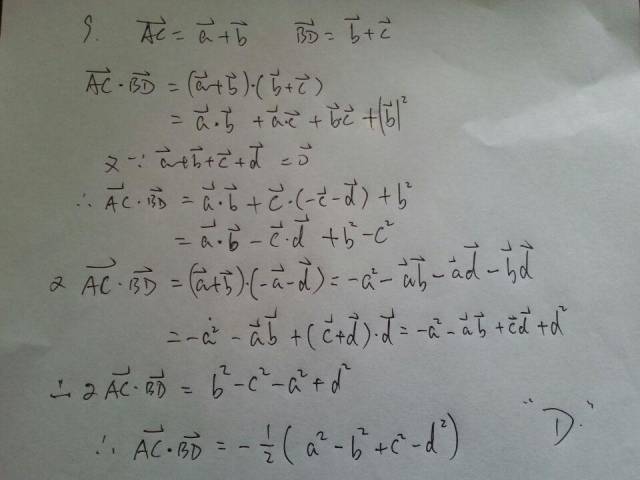 9. \vec{AC} = \vec{a} + \vec{b} \vec{BD} = \vec{b} + \vec{c}
\vec{AC} · \vec{BD} = (\vec{a} + \vec{b}) · (\vec{b} + \vec{c})
= \vec{a} · \vec{b} + \vec{a} \vec{c} + \vec{b} \vec{c} + |\vec{b}|²
又∵ \vec{a} + \vec{b} + \vec{c} + \vec{d} = \vec{0}
∴ \vec{AC} · \vec{BD} = \vec{a} · \vec{b} + \vec{c} · (-\vec{c} - \vec{d}) + b²
= \vec{a} · \vec{b} - \vec{c} · \vec{d} + b² - c²
又 \vec{AC} · \vec{BD} = (\vec{a} + \vec{b}) · (-\vec{a} - \vec{d}) = -a² - \vec{a} \vec{b} - \vec{a} \vec{d} - \vec{b} \vec{d}
= -a² - \vec{a} \vec{b} + (\vec{c} + \vec{d}) · \vec{d} = -a² - \vec{a} \vec{b} + \vec{c} \vec{d} + d²
∴ 2 \vec{AC} · \vec{BD} = b² - c² - a² + d²
∴ \vec{AC} · \vec{BD} = -\frac{1}{2} (a² - b² + c² - d²) "D."